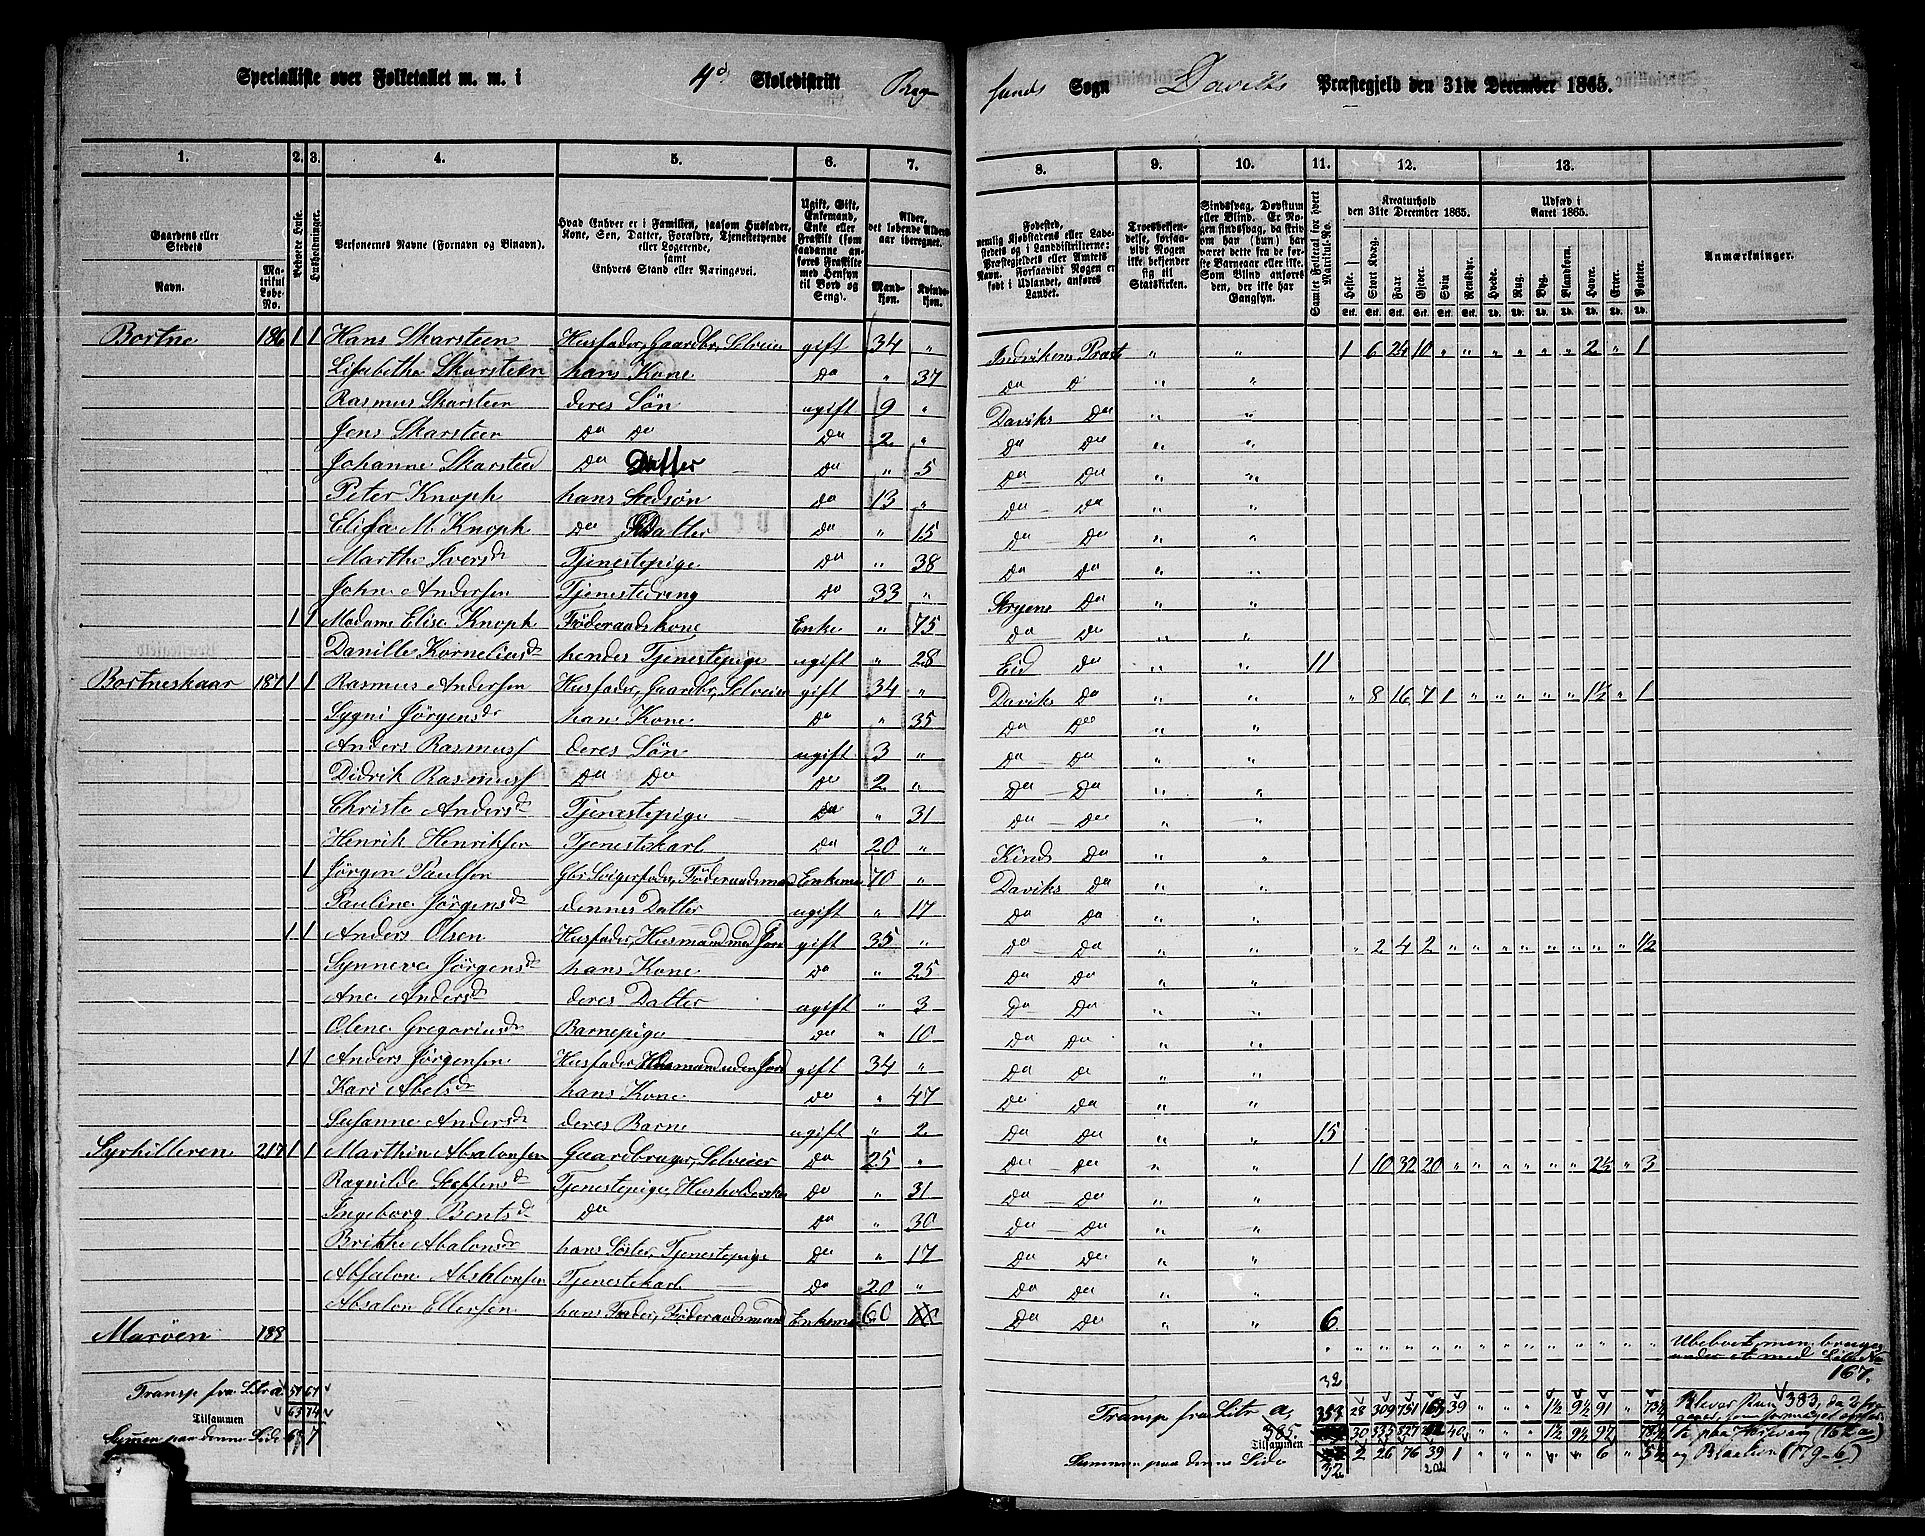 Specialliste over Folketallet m. m. i 4de Skoledistrikt Brem-
sunds Sogn Daviks Præstegjeld den 31te December 1865.
1. 2. 3. 4. 5. 6. 7.
8. 9. 10. 11. 12. 13.
Gaardens eller Stedets
Navn.
Matrikul Løbe-No.
Beboede Huse.
Husholdninger.
Personernes Navne (Fornavn og Tilnavn).
Hvad Enhver er i Familien, saasom Husfader, Kone, Søn, Datter, Forældre, Tjenestetyende eller Logerende, samt Enhvers Stand eller Næringsvei.
Ugift, Gift, Enkemand, Enke eller Fraskilt
Alder, det løbende Aldersaar iberegnet.
Mandkjøn. Kvindekjøn.
Fødested,
Samlet Folketal for hvert Matrikul-No.
Kreaturhold den 31te December 1865.
Udsæd i Aaret 1865.
Anmærkninger.
Heste. Stort Kvæg. Faar. Gjeder. Svin. Rensdyr. Hvede. Rug. Byg. Blandkorn. Havre. Erter. Poteter.
Bortne 186 1 1 Hans Skarsteen Husfader, Gaardbr, Selveier gift 34 " Indvikens Præst " " 1 6 24 10 " " " " " " 2 " 1
Lisabethe Skarsteen hans Kone Do " 37 Do D " "
Rasmus Skarsteen deres Søn ugift 9 " Daviks Do " "
Jens Skarsteen Do Do Do 2 " Do Do " "
Johanne Skarsteen Do Datter Do " 5 Do Do " "
Peter Knoph hans Stedsøn Do 13 " Do Do " "
Elisa M. Knoph Do Datter Do " 15 Do Do " "
Marthe Iversdr Tjenestepige Do " 38 Do Do " "
John Andersen Tjenestedreng Do 33 " Stryens Do " "
1 1 Madame Elise Knoph Föderaadskone Enke " 75 Do Do " "
Danille Korneliusdr hendes Tjenestepige ugift " 28 Eid Do " " 11
Bortneskaar 187 1 1 Rasmus Andersen Husfader, Gaardbr, Selveier gift 34 " Daviks Do " " " 8 16 7 1 " " " " " 1½ " 1
Sygni Jörgensdr hans Kone Do " 35 Do Do " "
Anders Rasmuss deres Søn ugift 3 " Do Do " "
Didrik Rasmuss Do Do Do 2 " Do Do " "
Christe Andersdr Tjenestepige Do " 31 Do Do " "
Henrik Henriksen Tjenestekarl Do 20 " Kinds Do " "
1 Jörgen Paulsen Svigerfader, Föderaadsmand Enkem 70 " Daviks Do " "
Pauline Jörgensdr dennes Datter ugift " 17 Do Do " "
1 1 Anders Olsen Husfader, Husmand med Jord gift 35 " Do Do " " " 2 4 2 " " " " " " " " ½
Synneve Jörgensdr hans Kone Do " 25 Do Do " "
Ane Andersdr deres Datter ugift " 3 Do Do " "
Olene Gregoriusdr Barnepige Do " 10 Do Do " "
1 1 Anders Jörgensen Husfader, Husmand uden Jord gift 34 " Do Do " "
Kari Abelsdr hans Kone Do " 47 Do Do " "
Susanne Andersdr deres Barne ugift " 2 Do Do " " 15
Syrhilleren 217 1 1 Marthin Absalonsen Gaardbruger, Selveier Do 25 " Do Do " " 1 10 32 20 " " " " " " 2½ " 3
Ragnilde Steffensdr Tjenestepige, Husholderske Do " 31 Do Do " "
Ingeborg Bentsdr Do Do " 30 Do Do " "
Brithe Absalonsdr hans Søster, Tjenestepige Do " 17 Do Do " "
Absalon Absalonsen Tjenestekarl Do 20 " Do Do " "
Absalon Ellersen hans Fader, Föderaadsmand Enkem 60 Do Do " " 6
Maröen 188 Ubeboet, men bruges under et med 167.
32
Transp fra Litr a. 57 67
Tilsammen 63 74
Summen paa denne Side 6 7
Transp fra Litr a. 353 28 309 751 163 39 " " 1½ 9½ 91 " 73½
Tilsammen 385. 30 335 827 40 " " 1½ 9½ 97 " 78½
Summen paa denne Side 32 2 26 76 39 1 " " " " 6 " 5½
202
Bliver kun 383, da 2